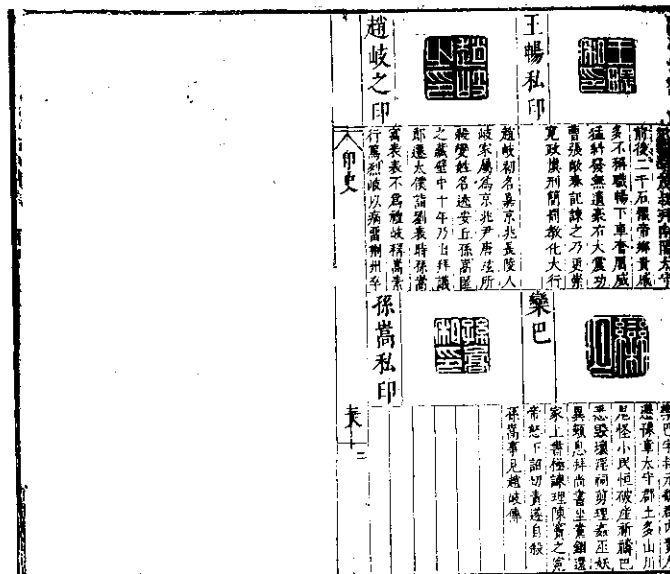 王暢私印
拜南陽太守
前後二千石懼帝鄉貴戚
多不稱職暢下車奮厲威
猛糾發無遺豪右大震功
曹張敞奏記諫之乃更崇
寬政慎刑簡罰教化大行
趙岐之印
趙岐初名嘉京兆長陵人
岐家屬為京兆尹唐玹所
殺變姓名逃安丘孫嵩匿
之藏壁中十年乃出拜議
郎遷太僕詣劉表時孫嵩
寓表表不為禮岐稱嵩素
行篤烈岐以病留荊州卒
欒巴
欒巴字叔元魏郡內黃人
遷豫章太守郡土多山川
鬼怪小民恒破產祈禱巴
悉毀壞淫祠剪理姦巫妖
異類息拜尚書坐黨錮還
家上書極諫理陳竇之冤
帝怒下詔切責遂自殺
孫嵩私印
孫嵩事見趙岐傳
印史